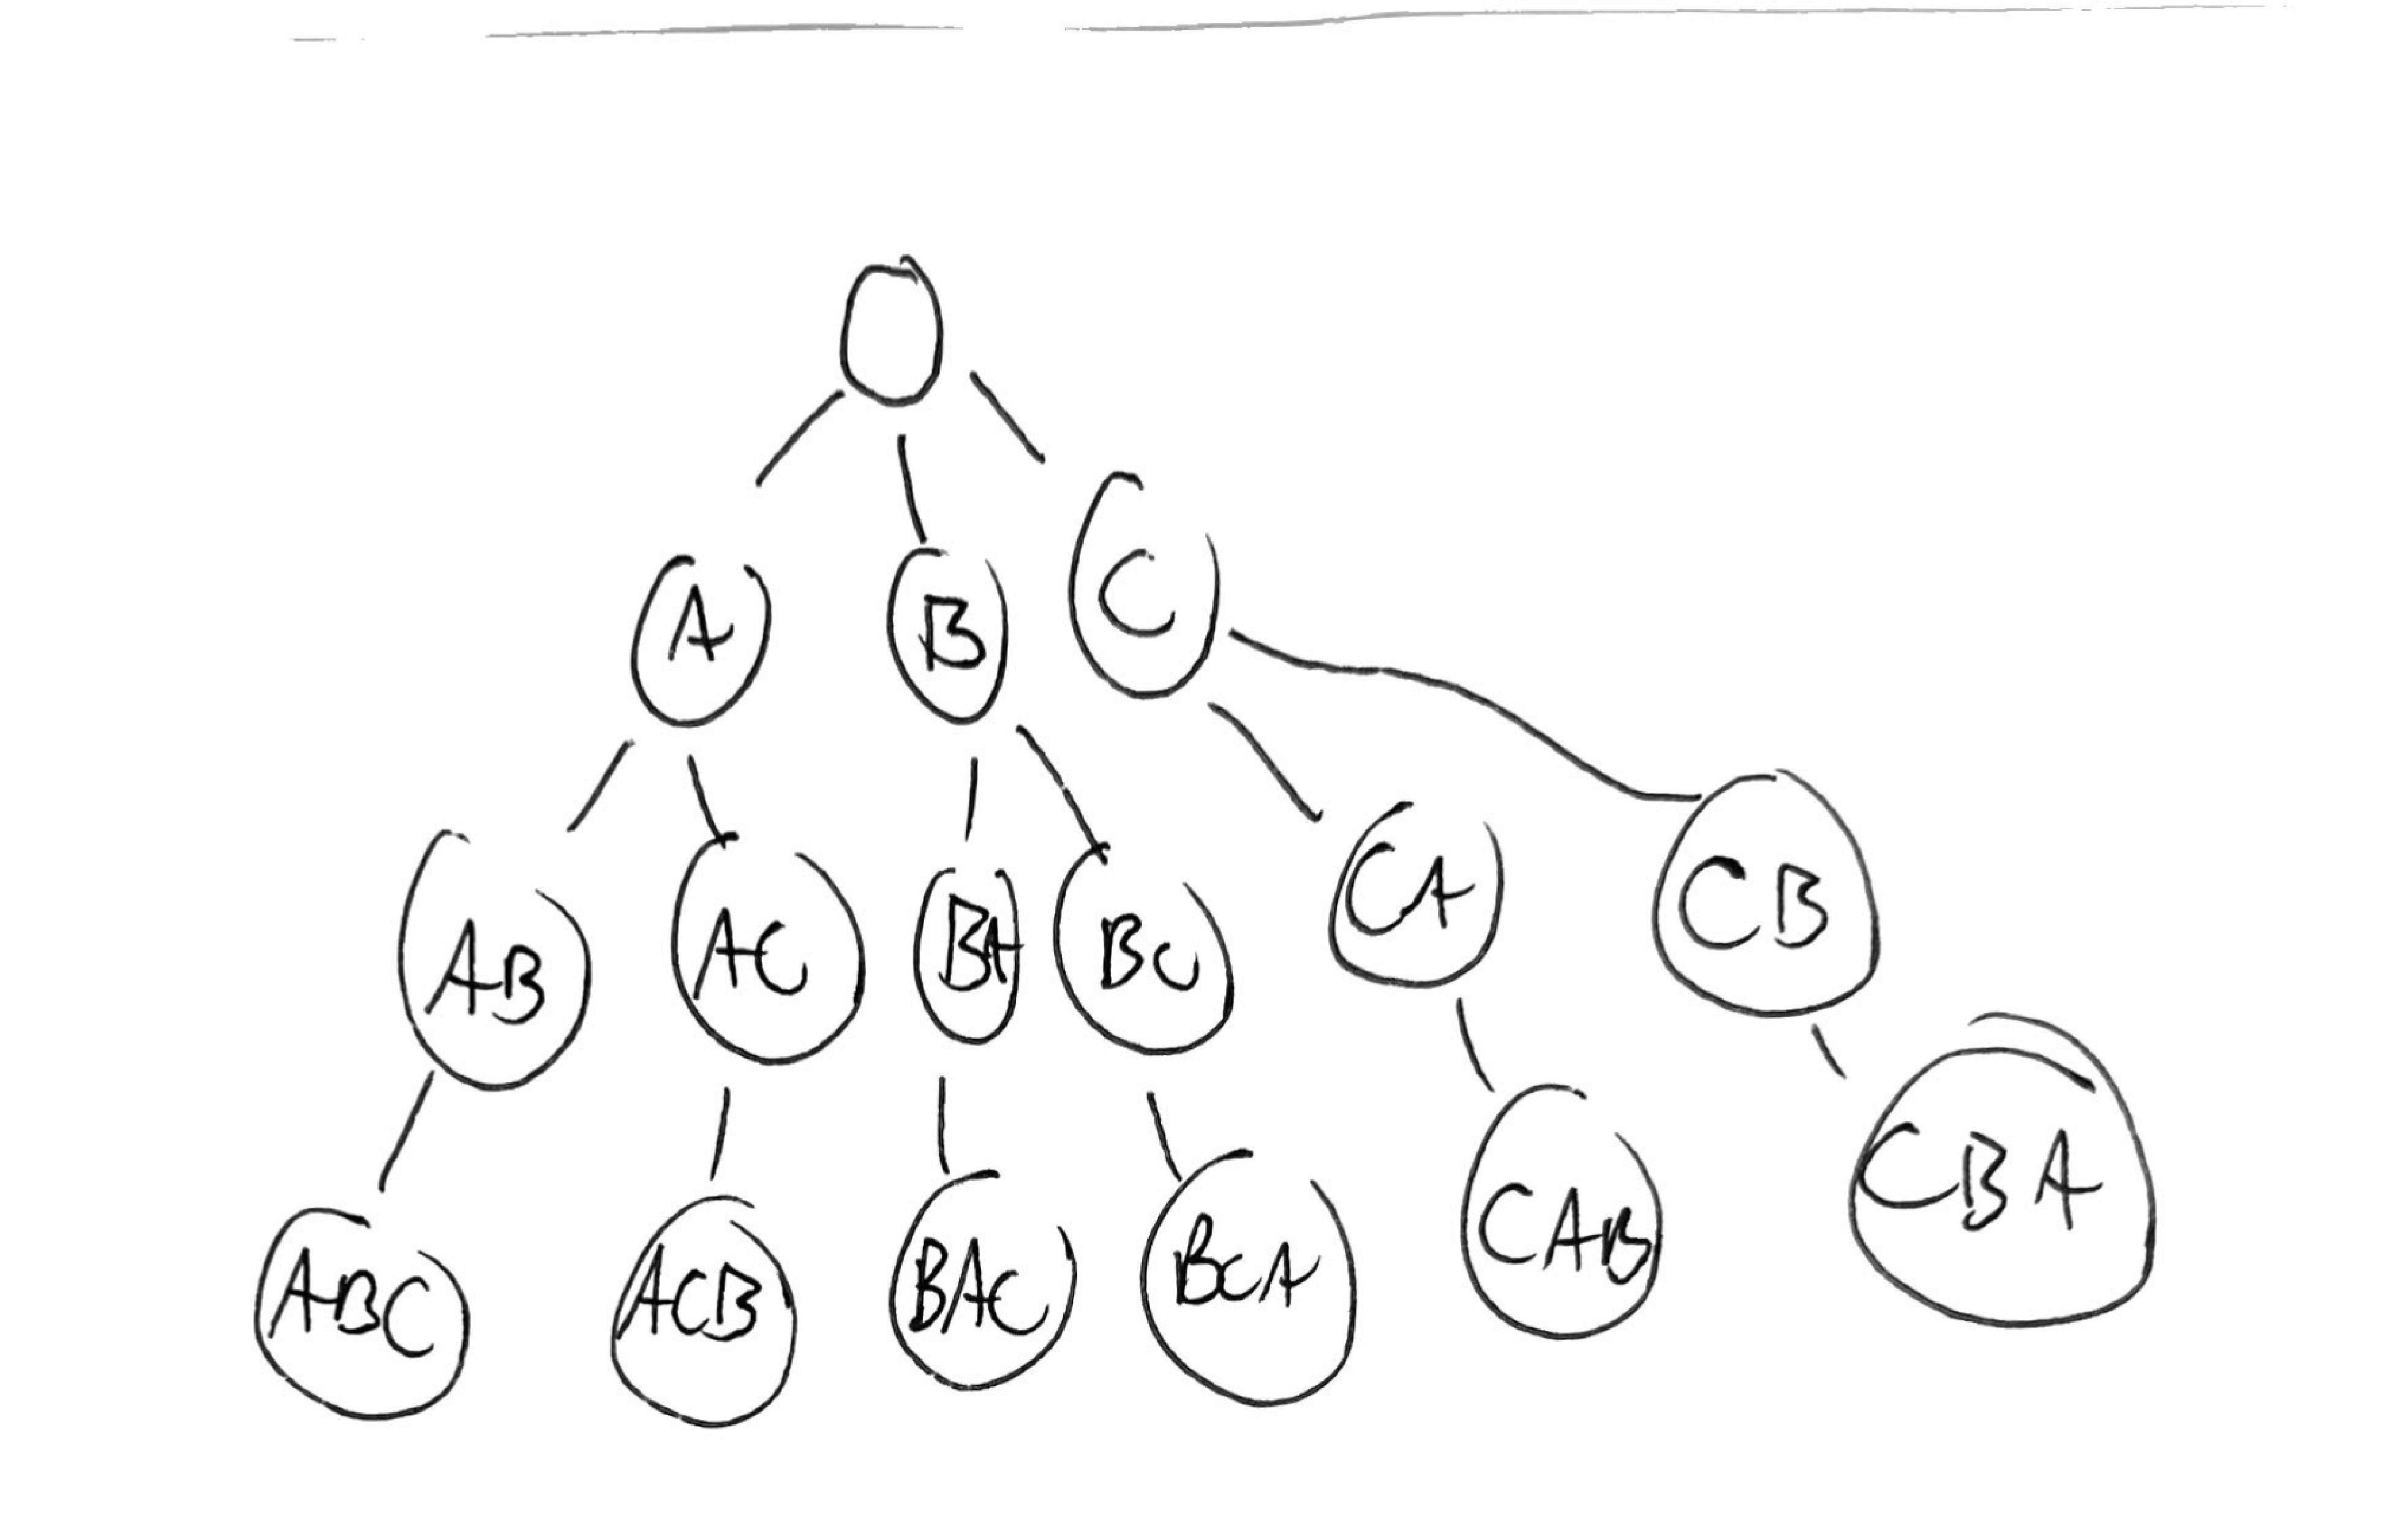 A B C
AB AC BA BC CA CB
ABC ACB BAC BCA CAB CBA